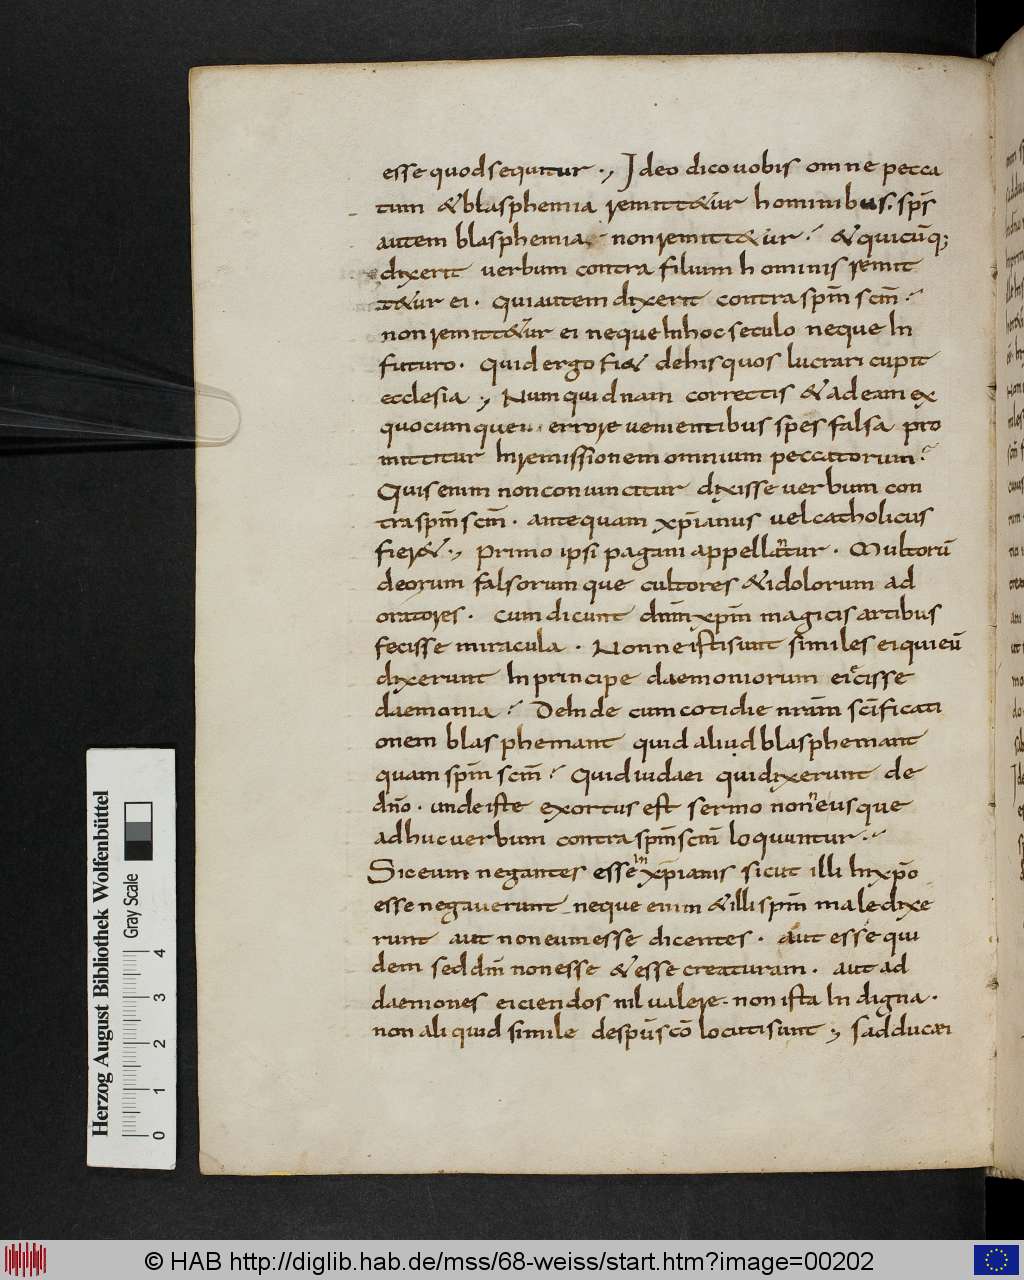 esse quod sequitur ·, Ideo dico uobis omne pecca
tum & blasphemia remitt&ur hominibus. sps̄
autem blasphemia · non remitt&ur · & quicūq;
dixerit uerbum contra filium hominis remit
t&ur ei · qui autem dixerit contra sp̄m sc̄m ·
non remitt&ur ei neque in hoc seculo neque in
futuro · quid ergo fi& de his quos lucrari cupit
ecclesia ·, Numquid nam correctis & ad eam ex
quocumque · errore uenientibus spes falsa pro
mittitur in remissionem omnium peccatorum ·
Quis enim non conuincitur dixisse uerbum con
tra sp̄m sc̄m · antequam xp̄ianus uel catholicus
fier& ·, primo ipsi pagani appellantur · Multorū
deorum falsorumque cultores & idolorum ad
oratores · cum dicunt dn̄m xp̄m magicis artibus
fecisse miracula · Nonne isti sunt similes ei qui eū
dixerunt in principe daemoniorum eiecisse
daemonia · Deinde cum cotidie nrām scīficati
onem blasphemant quid aliud blasphemant
quam sp̄m sc̄m · Quid iudaei qui dixerunt de
dn̄o · unde iste exortus est sermo nonne usque
adhuc uerbum contra sp̄m sc̄m loquuntur ·
Sic eum negantes esse in xp̄ianis sicut illi in xp̄o
esse negauerunt neque enim & illi sp̄m maledixe
runt aut non eum esse dicentes · aut esse qui
dem sed dm̄ non esse & esse creaturam · aut ad
daemones eiciendos nil ualere · non ista indigna ·
non aliquid simile de spū scō locuti sunt ·, sadducaei
Herzog August Bibliothek Wolfenbüttel
Gray Scale
0 1 2 3 4
© HAB http://diglib.hab.de/mss/68-weiss/start.htm?image=00202